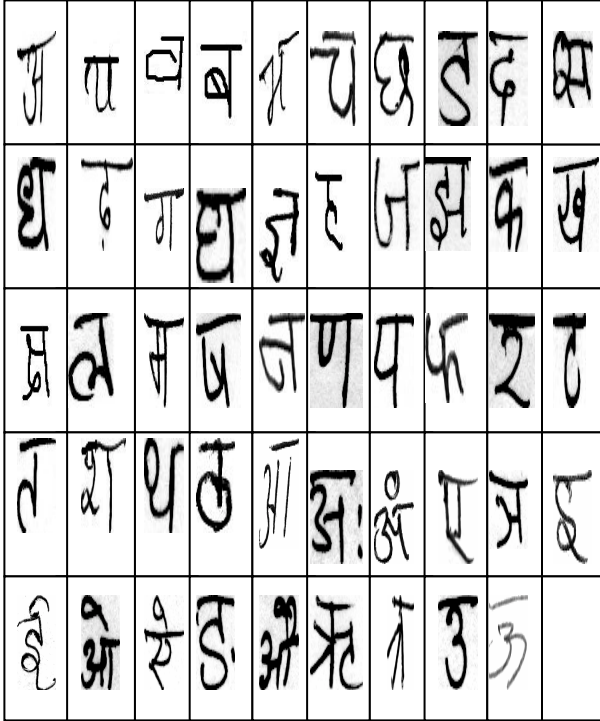 अ प व ब भ च छ ड द क्ष
ध ढ़ ग घ ज्ञ ह ज झ क ख
ल म ष न ण प फ र ट
त श थ ठ आ अः अं ए ञ इ
ई ओ ऐ ङ औ ऋ त्र उ ऊ